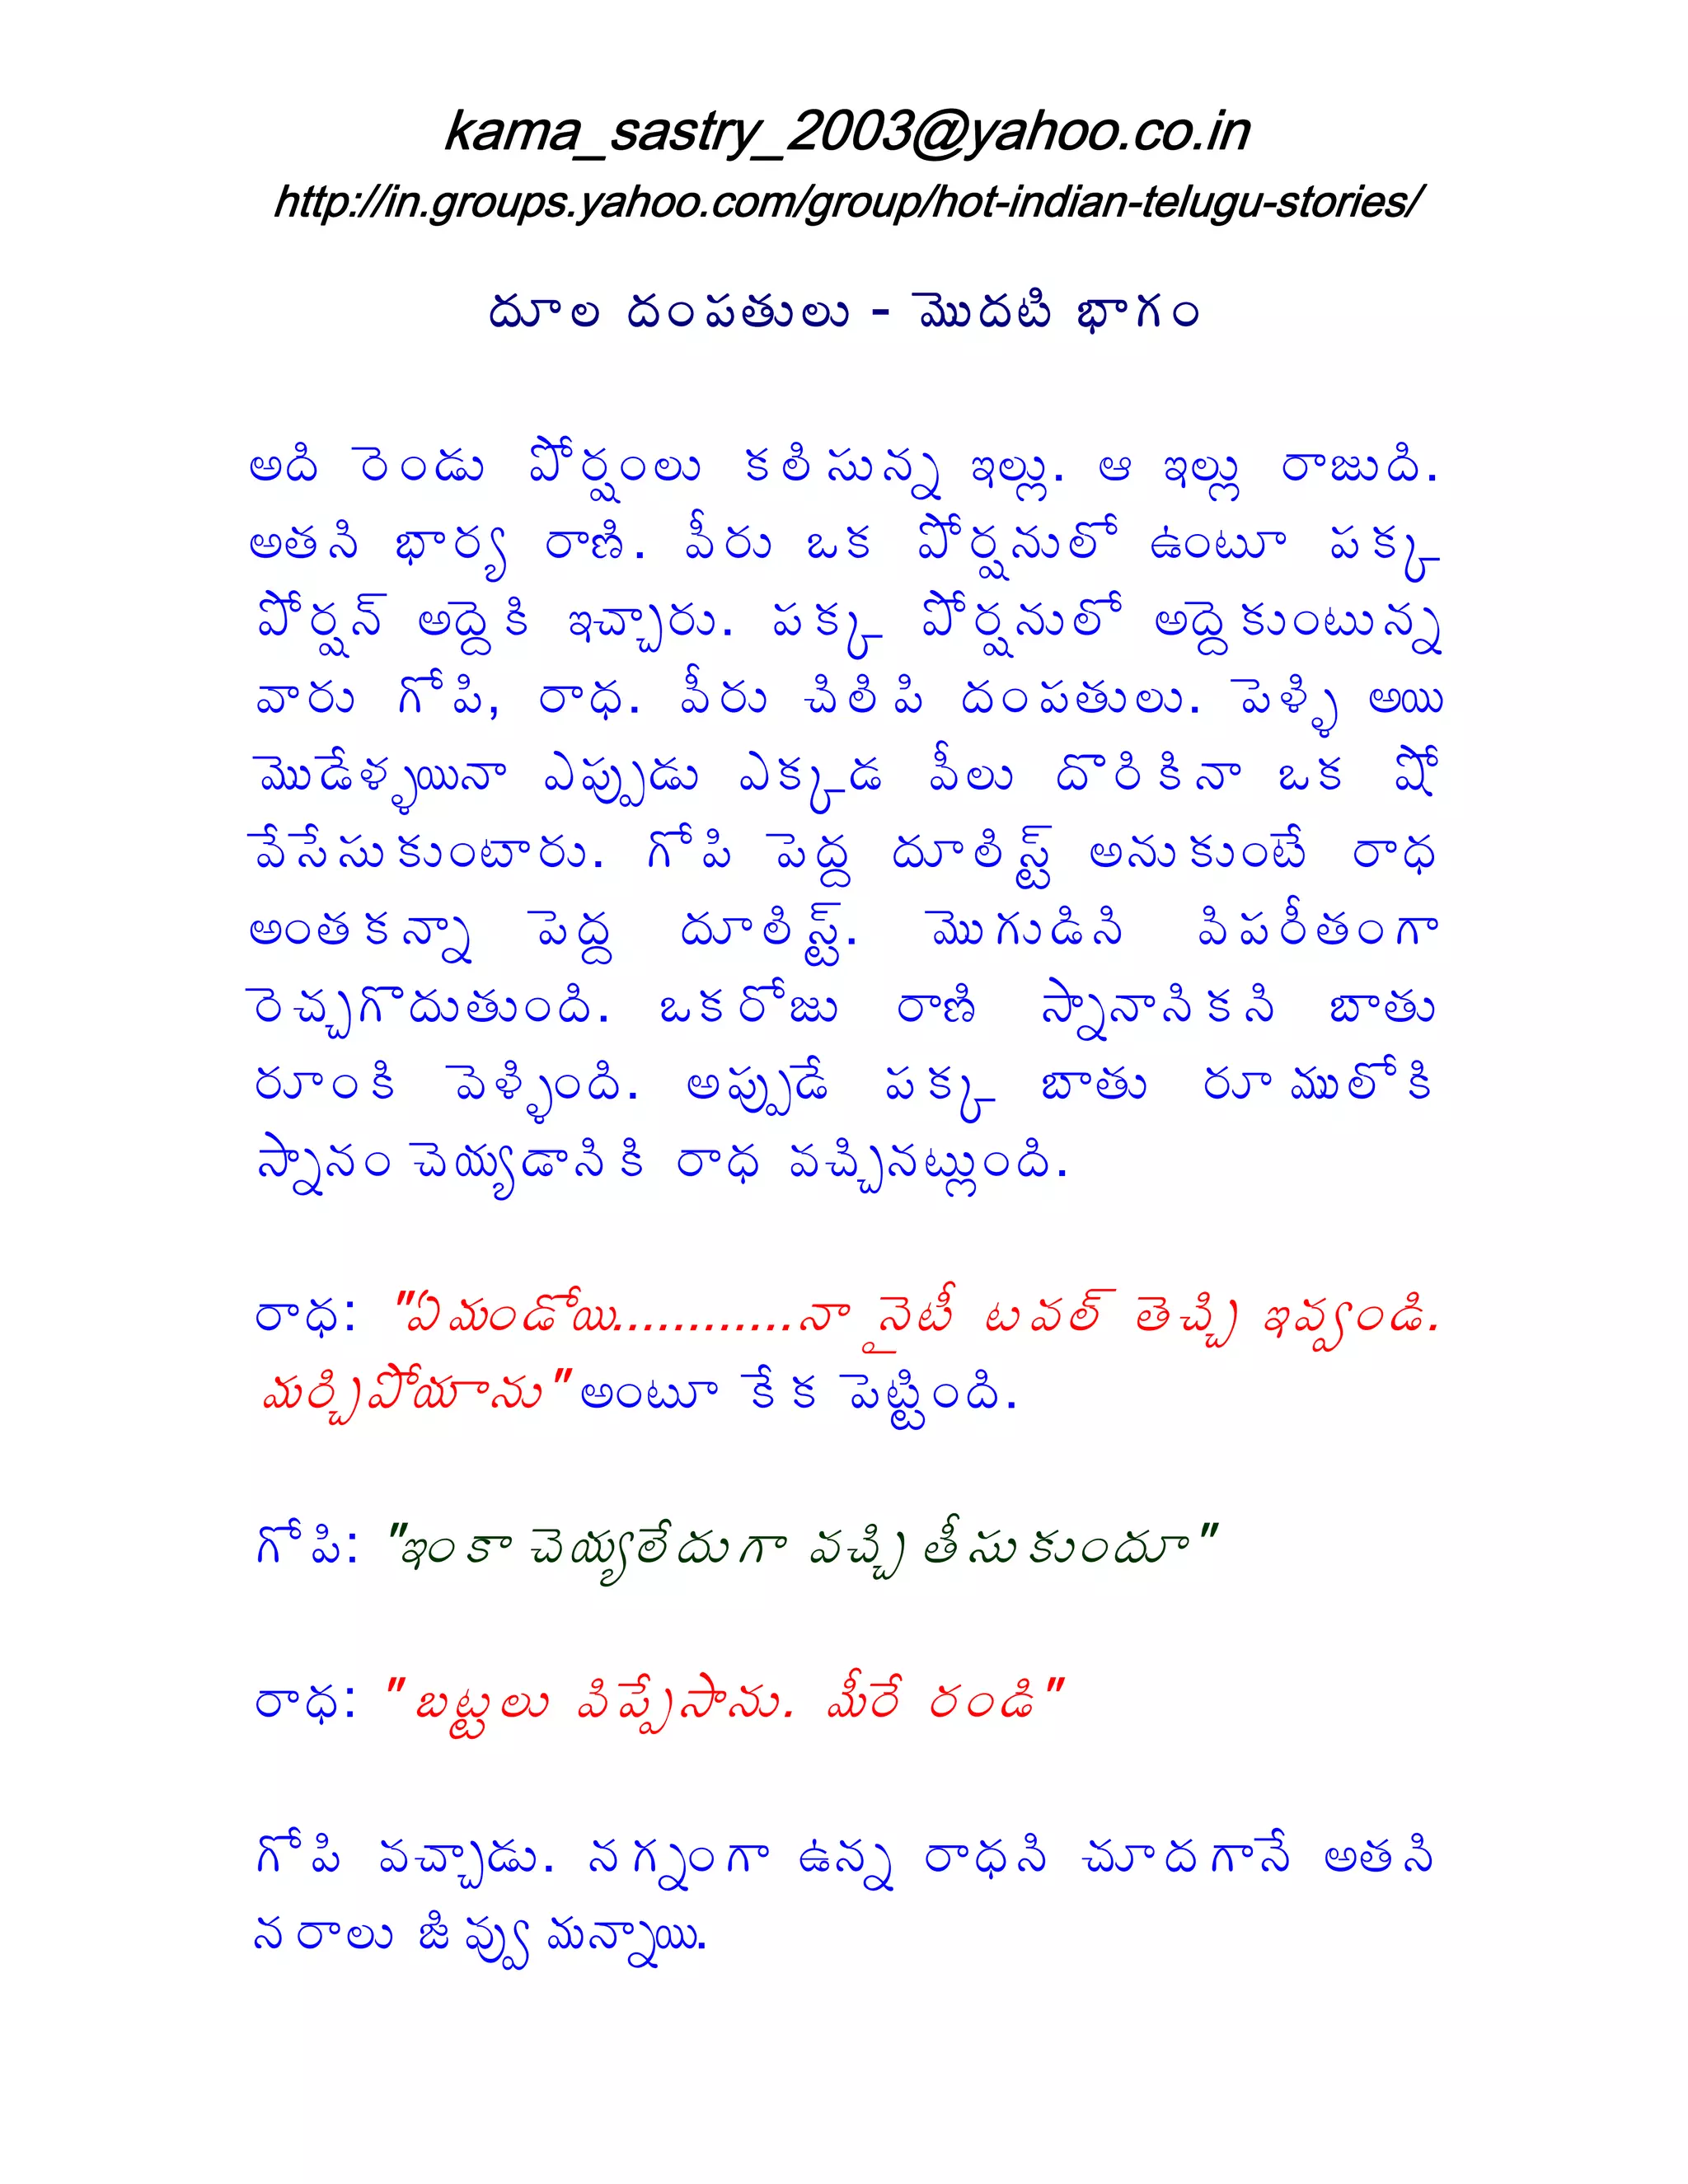 kama_sastry_2003@yahoo.co.in
http://in.groups.yahoo.com/group/hot-indian-telugu-stories/
దూల దంపతులు - మొదటి భాగం
అది రెండు పోర్షంలు కలిసున్న ఇల్లు. ఆ ఇల్లు రాజుది.
అతని భార్య రాణి. వీరు ఒక పోర్షనులో ఉంటూ పక్క
పోర్షన్ అద్దెకి ఇచ్చారు. పక్క పోర్షనులో అద్దెకుంటున్న
వారు గోపి, రాధ. వీరు చిలిపి దంపతులు. పెళ్ళి అయి
మొడేళ్ళయినా ఎప్పుడు ఎక్కడ వీలు దొరికినా ఒక షో
వేసేసుకుంటారు. గోపి పెద్ద దూలిస్ట్ అనుకుంటే రాధ
అంతకన్నా పెద్ద దూలిస్ట్. మొగుడిని విపరీతంగా
రెచ్చగొదుతుంది. ఒకరోజు రాణి స్నానానికని బాతు
రూంకి వెళ్ళింది. అప్పుడే పక్క బాతు రూములోకి
స్నానం చెయ్యడానికి రాధ వచ్చినట్లుంది.
రాధ: "ఏమండోయి............నా నైటీ టవల్ తెచ్చి ఇవ్వండి.
మర్చిపోయాను" అంటూ కేక పెట్టింది.
గోపి: "ఇంకా చెయ్యలేదుగా వచ్చి తీసుకుందూ"
రాధ: "బట్టలు విప్పేసాను. మీరే రండి"
గోపి వచ్చాడు. నగ్నంగా ఉన్న రాధని చూదగానే అతని
నరాలు జివ్వుమన్నాయి.